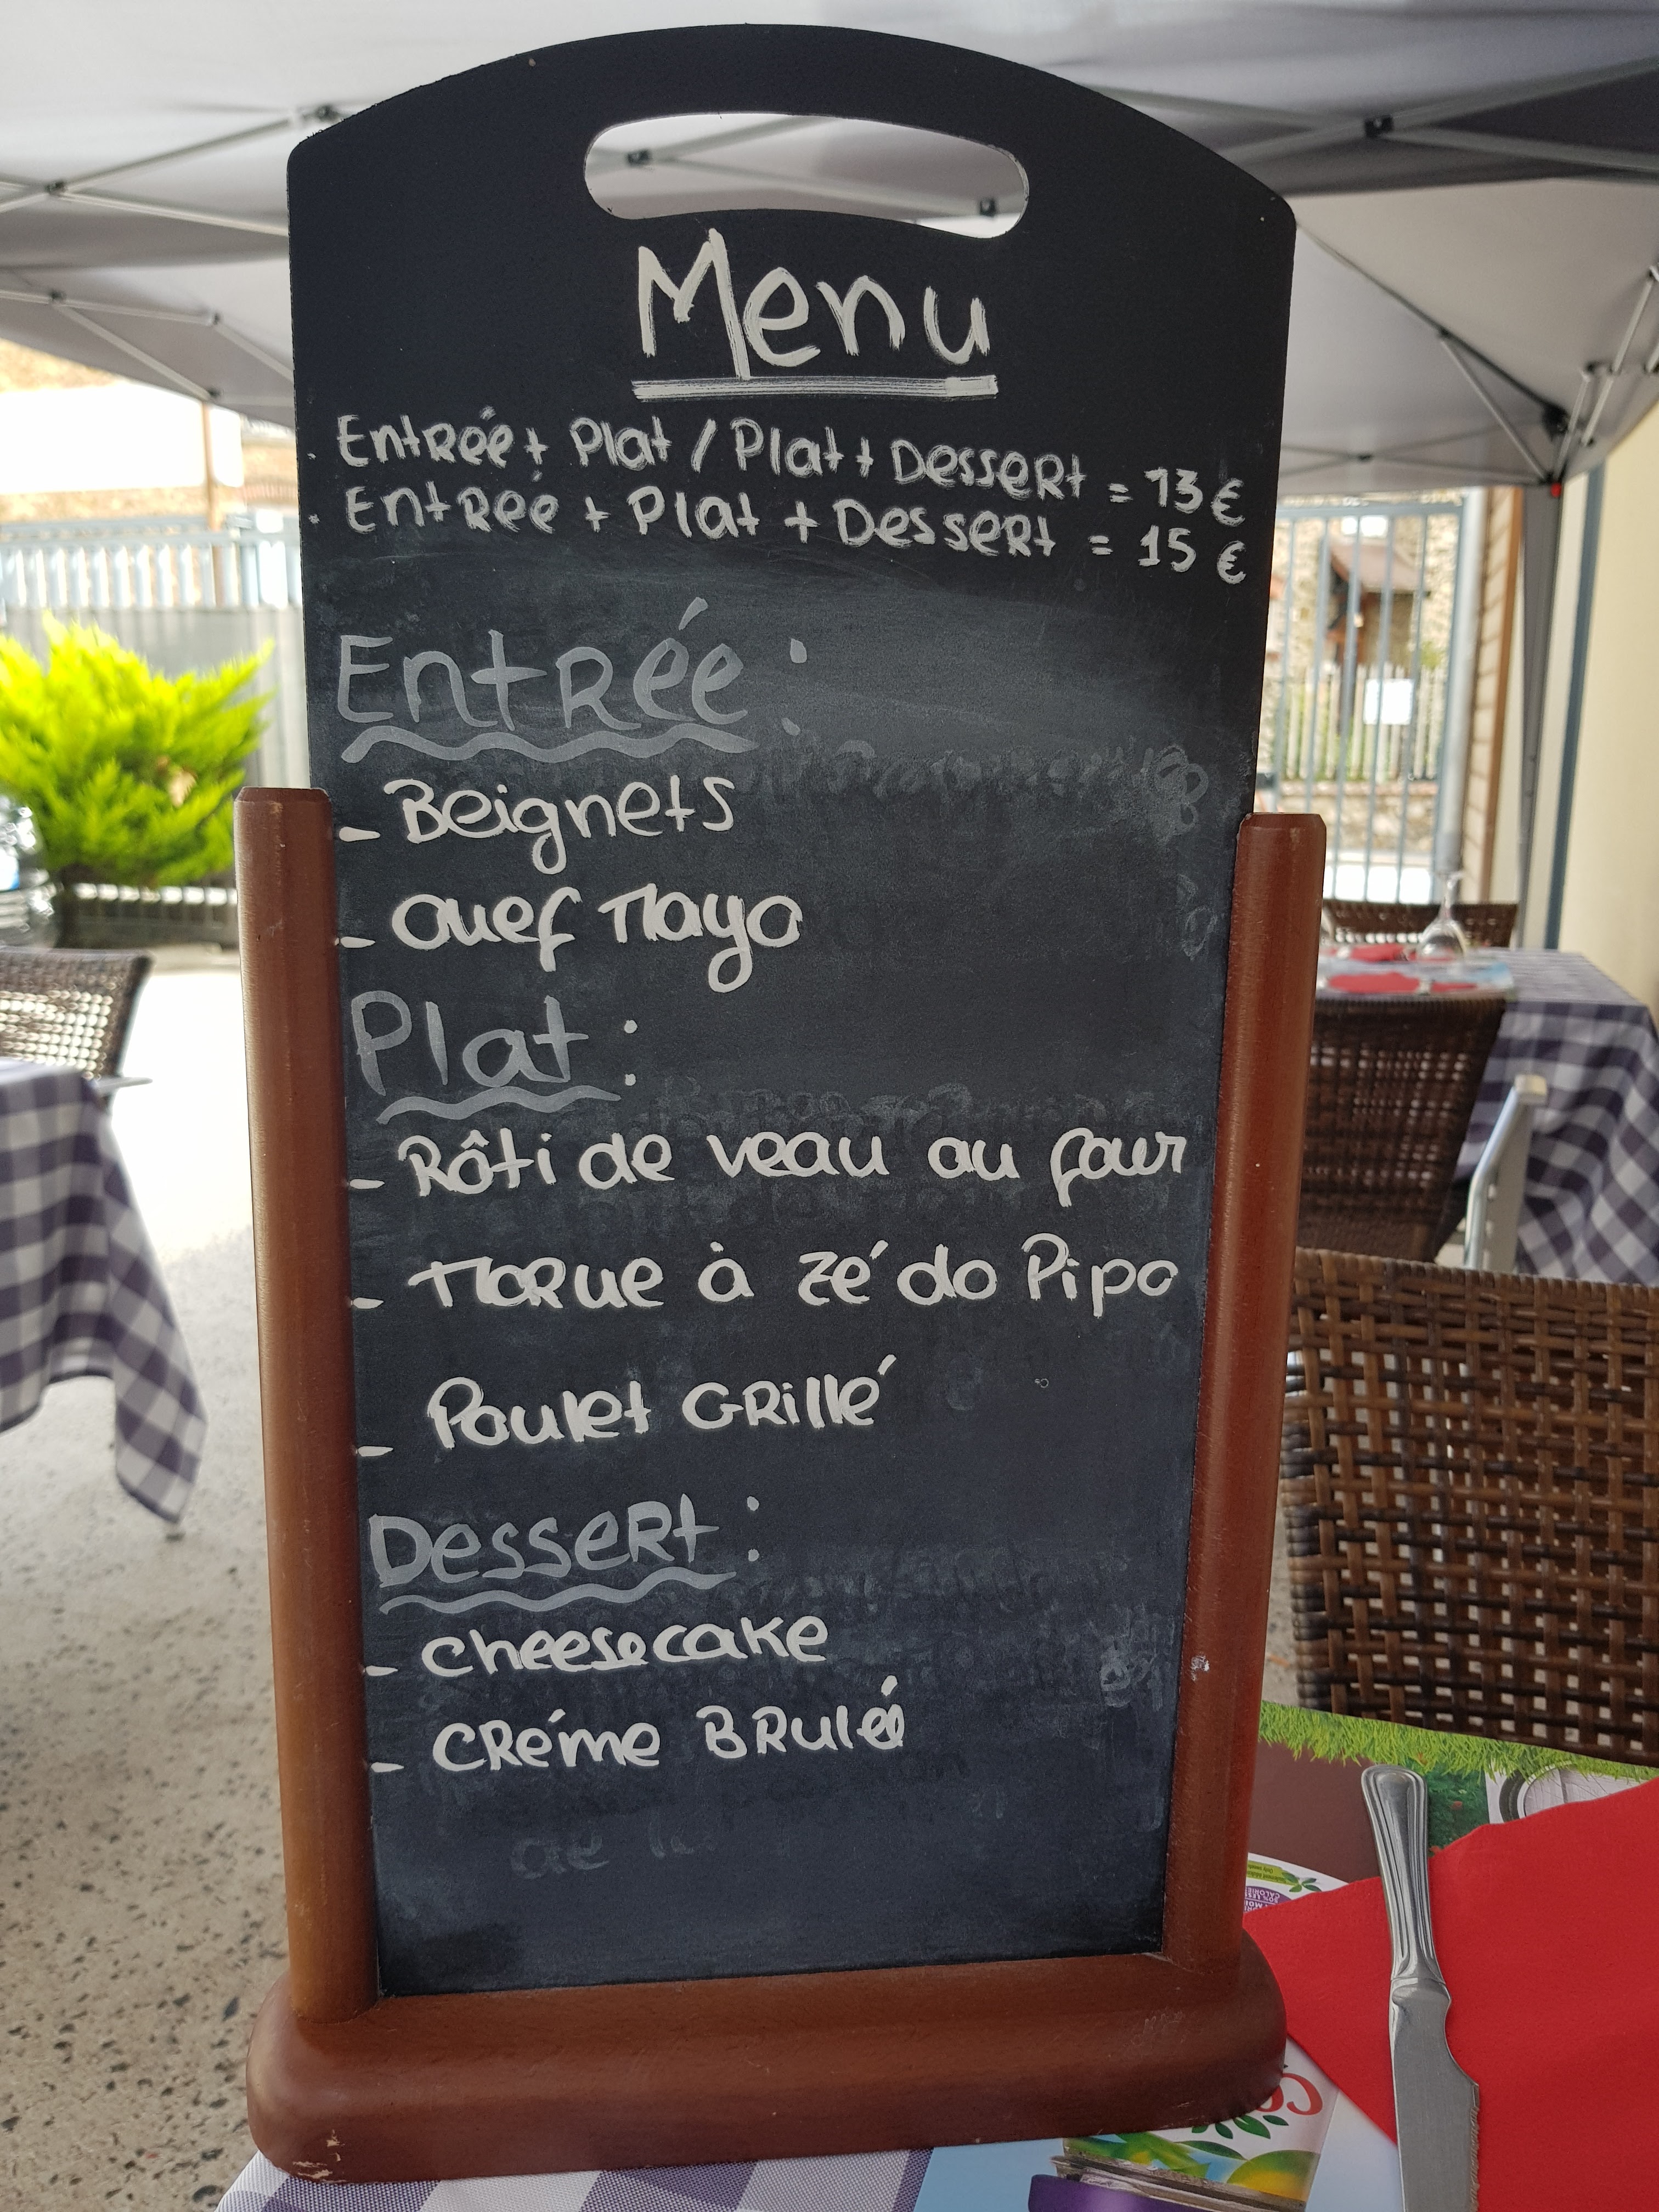 Menu
. Entrée + Plat / Plat + Dessert = 13 €
. Entrée + Plat + Dessert = 15 €
Entrée :
- Beignets
- Ouef Mayo
Plat :
- Rôti de veau au four
- Morue à zé do Pipo
- Poulet Grillé
Dessert :
- Cheesecake
- Créme Brulé